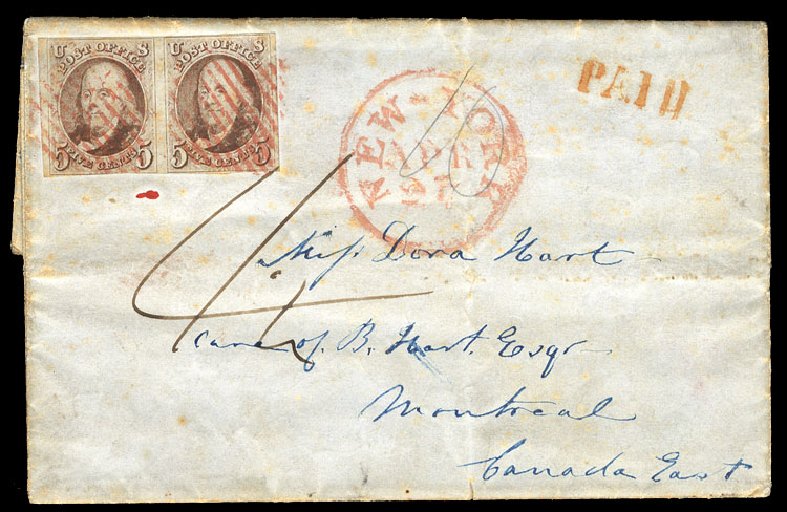 U S U S
POST OFFICE POST OFFICE
5 FIVE CENTS 5 5 FIVE CENTS 5
PAID
NEW-YORK
APR
10
4½
Miss Dora Hart
care of B. Hart. Esqr
Montreal
Canada East